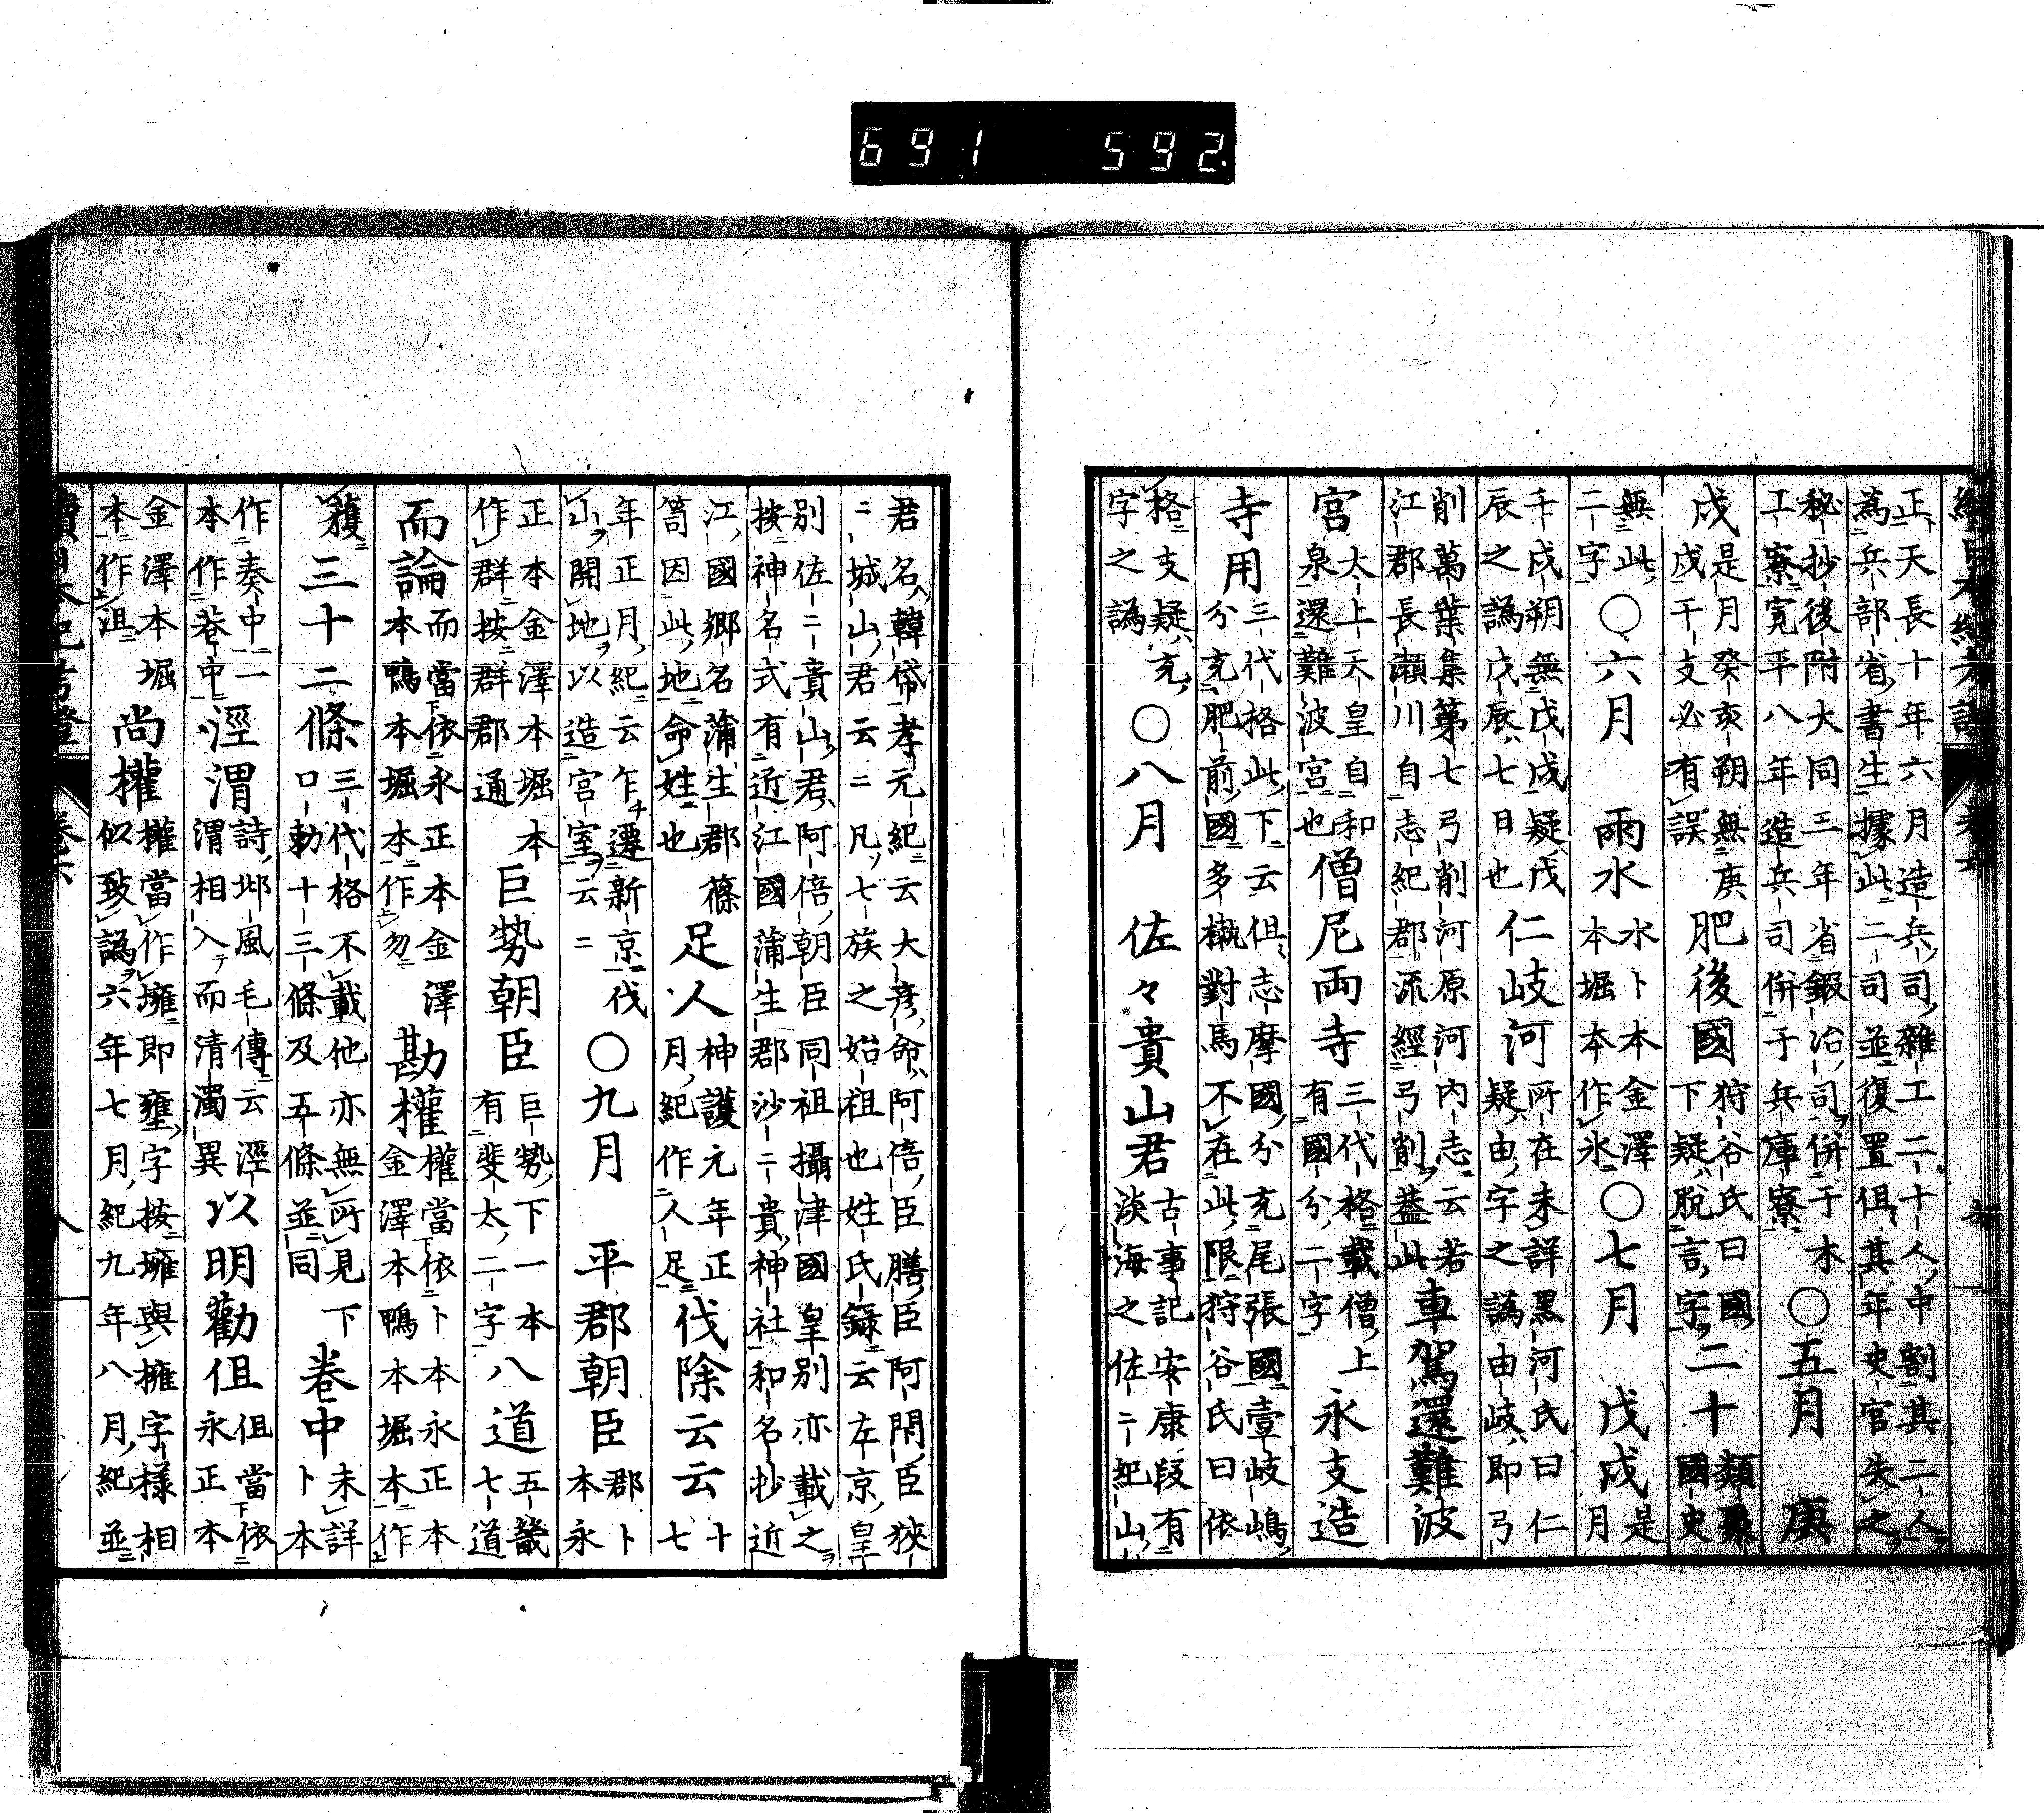 正天長十年六月造兵司雜工二十人中割其二人
為兵部省書生據此二司並復置但其年史官失之
秘抄後附大同三年省鍛冶司併于木
工寮寛平八年造兵司併于兵庫寮
○五月 庚
戌
是月癸亥朔無庚
戌干支必有誤
肥後國
狩谷氏曰國
下疑脱言字
二十
類聚
國史
無此
二字
○六月 雨水
水卜本金澤
本堀本作氷
○七月 戊戌
是
月
壬戌朔無戊戌疑戊
辰之譌戊辰七日也
仁岐河
所在未詳黒河氏曰仁
疑由字之譌由岐即弓
削萬葉集第七弓削河原河内志云若
江郡長瀬川自志紀郡流經弓削蓋此
車駕還難波
宮
太上天皇自和
泉還難波宮也
僧尼両寺
三代格載僧上
有國分二字
永支造
寺用
三代格此下云但志摩國分充尾張國壹岐嶋
分充肥前國多褹對馬不在此限狩谷氏曰依
格支疑充
字之譌
○八月 佐々貴山君
古事記安康段有
淡海之佐二紀山
君名韓帒孝元紀云大彦命阿倍臣膳臣阿閇臣狹
二城山君云二凡七族之始祖也姓氏録云左京皇
別佐二貴山君阿倍朝臣同祖攝津國皇別亦載之
按神名式有近江國蒲生郡沙二貴神社和名抄近
江國郷名蒲生郡篠
笥因此地命姓也
足人
神護元年正
月紀作人足
伐除云云
十
七
年正月紀云乍遷新京伐
山開地以造宮室云二
○九月 平郡朝臣
郡卜
本永
正本金澤本堀本
作群按群郡通
巨勢朝臣
巨勢下一本
有斐太二字
八道
五畿
七道
而論
而當依永正本金澤
本鴨本堀本作勿
勘權
權當依卜本永正本
金澤本鴨本堀本作
三十二條
三代格不載他亦無所見下
口勅十三條及五條並同
卷中
未詳
卜本
作奏中一
本作菴中
涇渭
詩邶風毛傳云涇
渭相入而清濁異
以明勸但
但當依
永正本
金澤本堀
本作沮
尚權
權當作擁即壅字按擁與權字様相
似致譌六年七月紀九年八月紀並
續日本紀考證 卷六
691 592